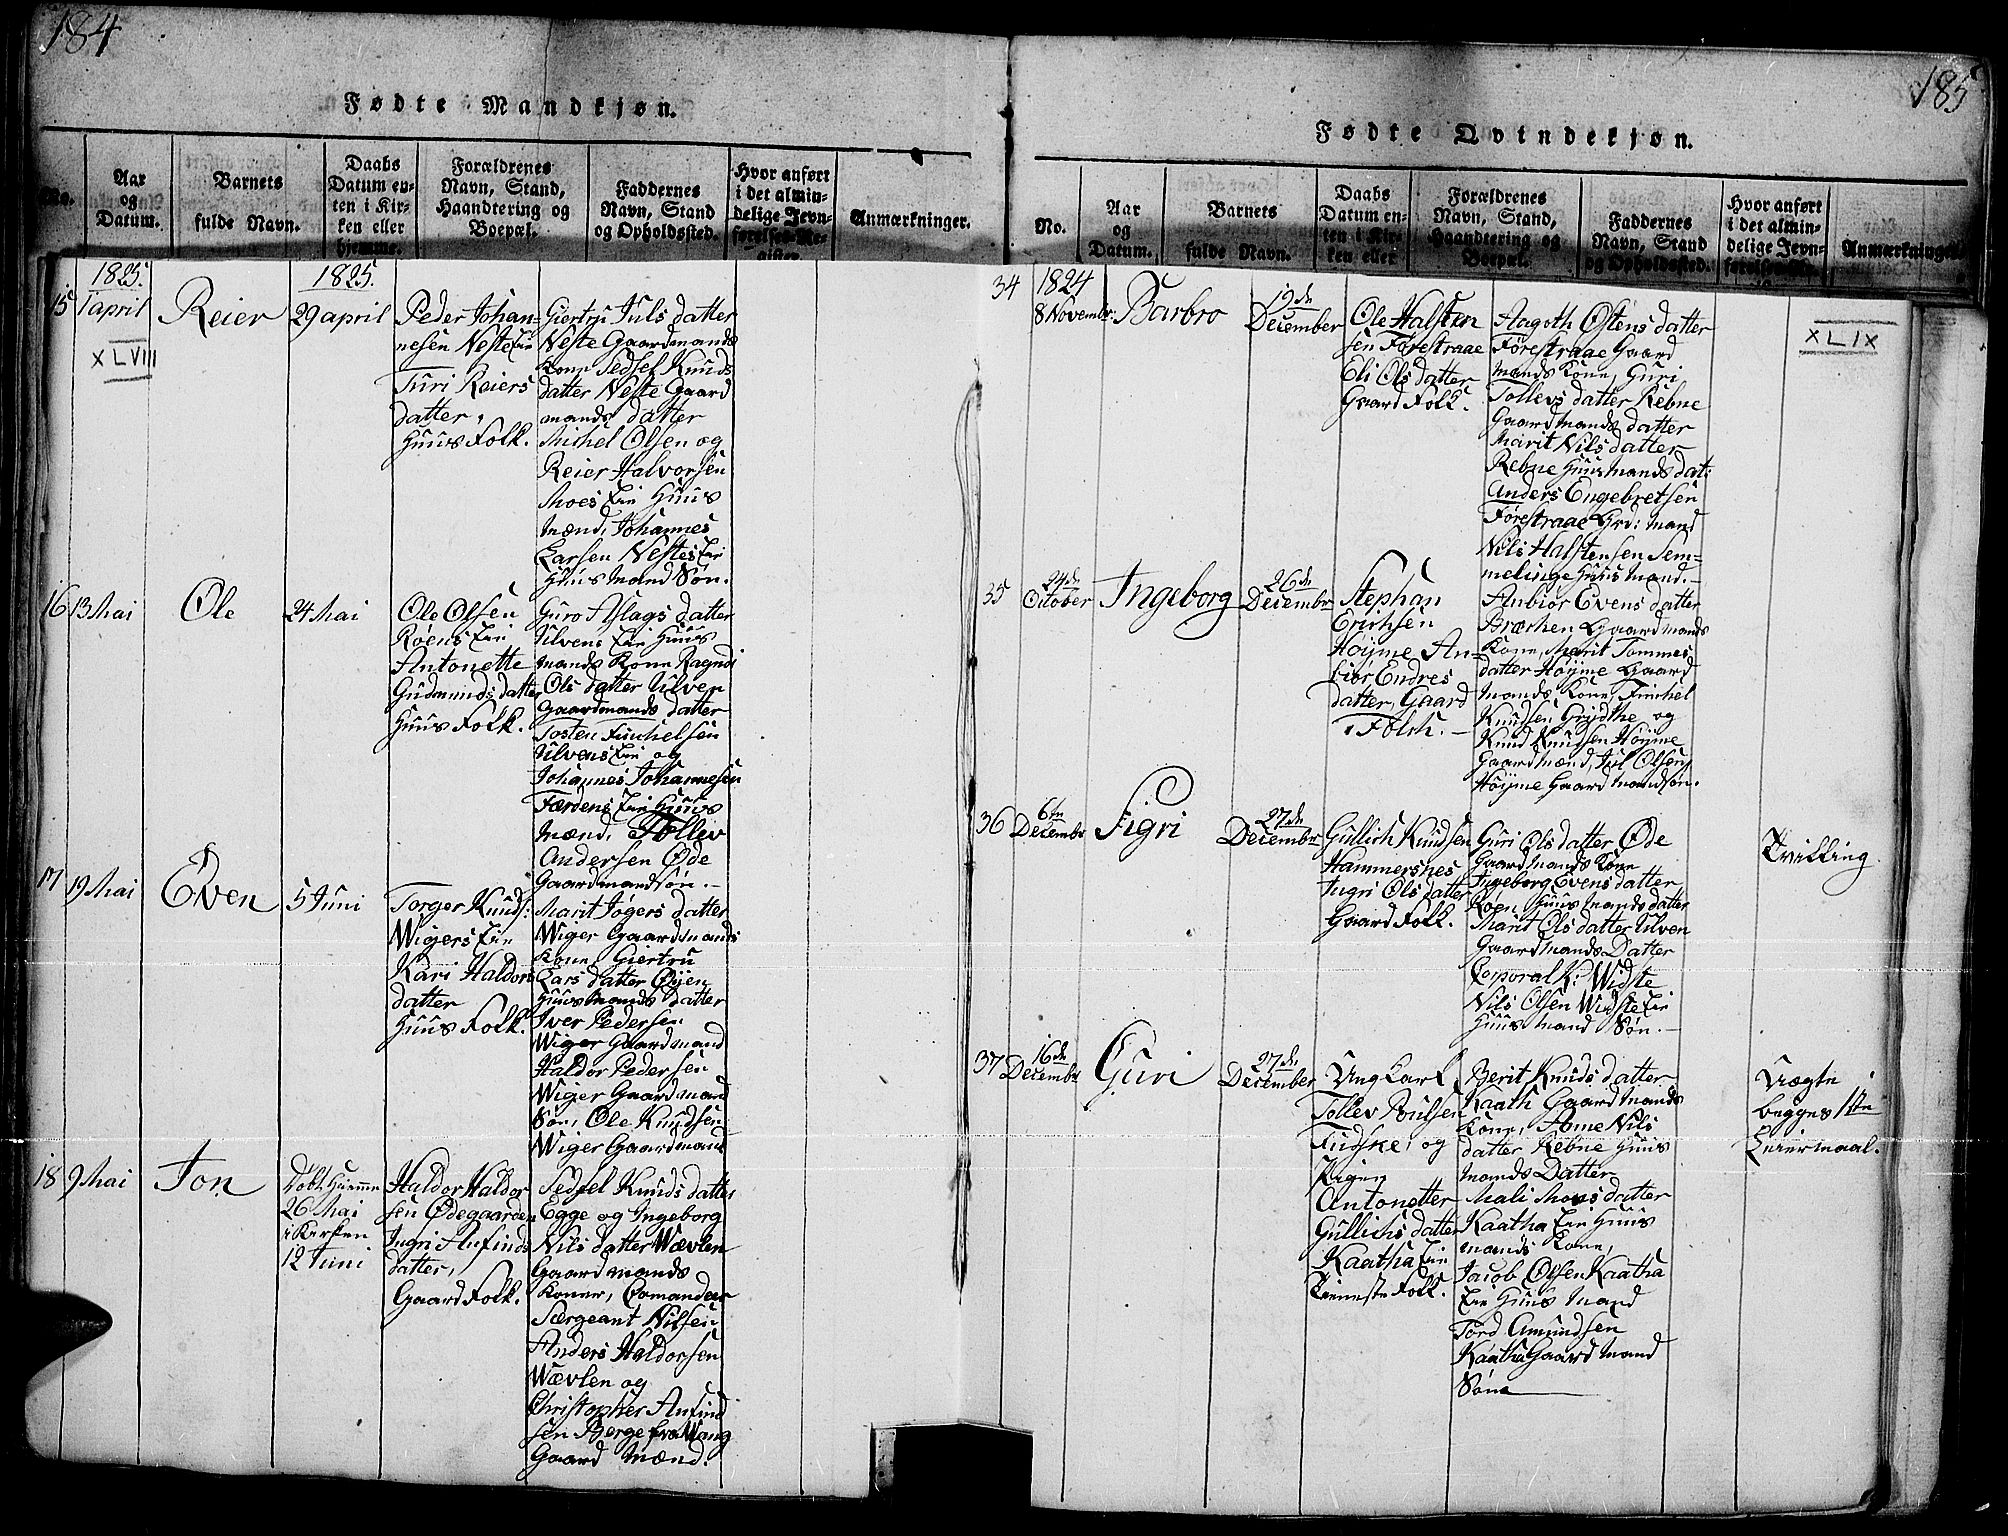 184
Fødte Mandkjøn.
No.
Aar
og
Datum.
Barnets
fulde Navn.
Daabs
Datum en-
ten i Kir-
ken eller
hjemme.
Forældrenes
Navn, Stand,
Haandtering og
Boepæl.
Faddernes
Navn, Stand
og Opholdssted.
Hvor anført
i det almin-
delige Jevn-
førelses-Re-
gister.
Anmærkninger.
1825.
1825.
15
1 april
XLVIII
Reier
29 april
Peder Johan-
nesen Neste Eie
Turi Reiers
datter,
Huus Folk.
Giertru Juls datter
Neste Gaardmands
Kone Sedsel Knuds
datter Neste Gaard
mands datter
Michel Olsen og
Reier Halvorsen
Moes Eie Huus
Mænd, Johannes
Larsen Nestes Eie
Huus Mand Søn.
16
13 Mai
Ole
24 Mai
Ole Olsen
Røens Eie
Antonette
Gudmunds datter
Huus Folk.
Guro Aslags datter
Ulvens Eie Huus
mands Kone Ragndi
Ols datter Ulven
Gaardmands datter
Tosten Finkelsen
Ulvens Eie og
Johannes Johannesen
Færdens Eie Huus
Mænd, Tollev
Andersen Øde
Gaardmandsøn.
17
19 Mai
Even
5 Juni
Torger Knuds:
Wigers Eie
Kari Haldors
datter
Huus Folk.
Marit Jøgers datter
Wiger Gaardmands
Kone, Giertru
Lars datter Øyen
Huus Mands datter
Iver Pedersen
Wiger Gaardmand
Haldor Pedersen
Wiger Gaardmand
Søn, Ole Knudsen
Wiger Gaardmand
18
9 Mai
Jon
Døbt Hiemme
26 Mai
i Kirken
12 Juni
Haldor Haldor
sen Ødegaarden
Ingri Anfinds
datter,
Gaard Folk.
Sedsel Knuds datter
Egge og Ingeborg
Nils datter Wævlen
Gaardmands
Koner, Comandeer
Særgeant Nilsen
Anders Haldorsen
Wævlen og
Christopher Anfind
sen Berge fra Wang
Gaard Mænd.
185
Fødte Qvindekjøn.
No.
Aar
og
Datum.
Barnets
fulde Navn.
Daabs
Datum en-
ten i Kir-
ken eller
Forældrenes
Navn, Stand,
Haandtering og
Boepæl.
Faddernes
Navn, Stand
og Opholdssted.
Hvor anført
i det almin-
delige Jevn-
Anmærkninger.
34
1824
8 Novembr:
Barbro
19de
December
Ole Halsten
sen Førestraae
Eli Ols datter
Gaard Folk.
Aagoth Østens datter
Førestraae Gaard
mands Kone, Guri
Tollevs datter Rebne
Gaardmands datter
Marit Nils datter
Rebne Huusmands dat:
Anders Engebretsen
Førestraae Grd: mand
Nils Halstensen Sem-
melinge Huusmand.
XLIX
35
24de
October
Ingeborg
26de
Decembr
Stephan
Erichsen
Høyme An-
biør Endres
datter, Gaard
Folch.
Anbiør Evens datter
Bræchen Gaardmands
Kone, Marit Tommes
datter Høyme Gaard
mands Kone, Finchel
Knudsen Grydthe og
Knud Knudsen Høyme
Gaardmænd, Jul Olsen
Høyme Gaardmandsøn.
36
6te
Decembr
Sigri
27de
Decembr
Gullich Knudsen
Hammersnes
Ingri Ols datter
Gaard Folk.
Guri Ols datter Øde
Gaardmands Kone
Ingeborg Evens datter
Røen Huus mands datter
Marit Ols datter Ulven
Gaardmands Datter
Corporal K: Widste
Nils Olsen Widste Eie
Huus mand Søn.
Tvilling.
37
16de
Decembr
Guri
27de
December
Ung Karl
Tollev Pulsen
Fudske, og
Pigen
Antonetter
Gullichs datter
Kaatha Eie
Tieneste Folk.
Berit Knuds datter
Kaath Gaardmands
Kone, Anne Nils
datter Rebne Huus
mands Datter
Mali Mons datter
Kaatha Eie Huus
mands Kone,
Jacob Olsen Kaatha
Eie Huus Mand
Tord Amundsen
Kaatha Gaard Mand
Søn
Uægte
begges 1ste
Leiermaal.